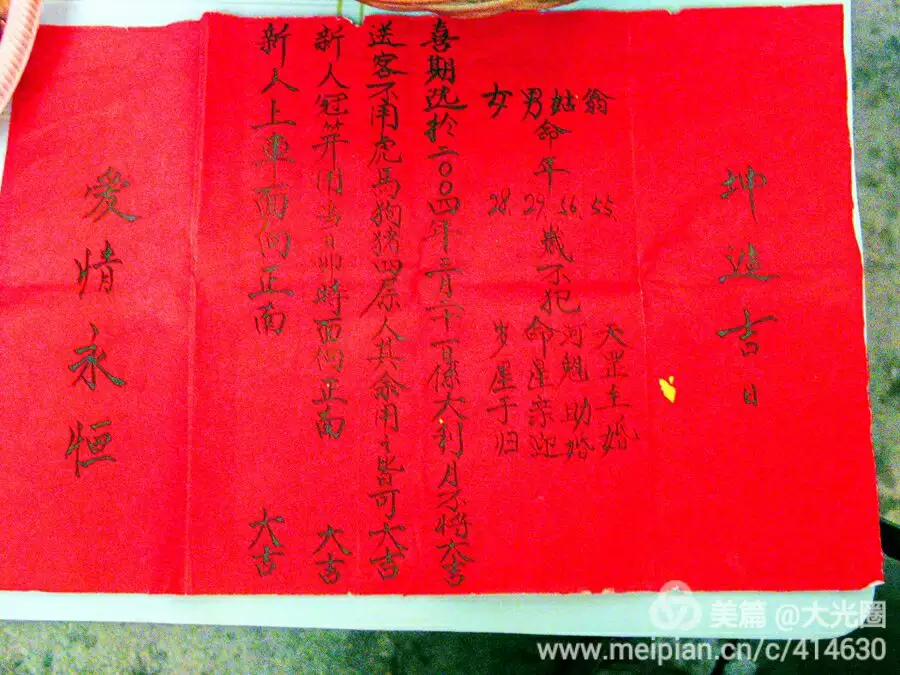 坤造吉日
翁 55 天罡主婚
姑 56 河魁助婚
男命年 29 岁不犯命星亲迎
女 28 岁星于归
喜期选於二〇〇四年二月二十一日係大利月不将大吉
送客不用虎馬狗猪四属人其余用之皆可大吉
新人冠笄用当日卯時面向正南 大吉
新人上車面向正南 大吉
愛情永恒
美篇 @大光圈
www.meipian.cn/c/414630